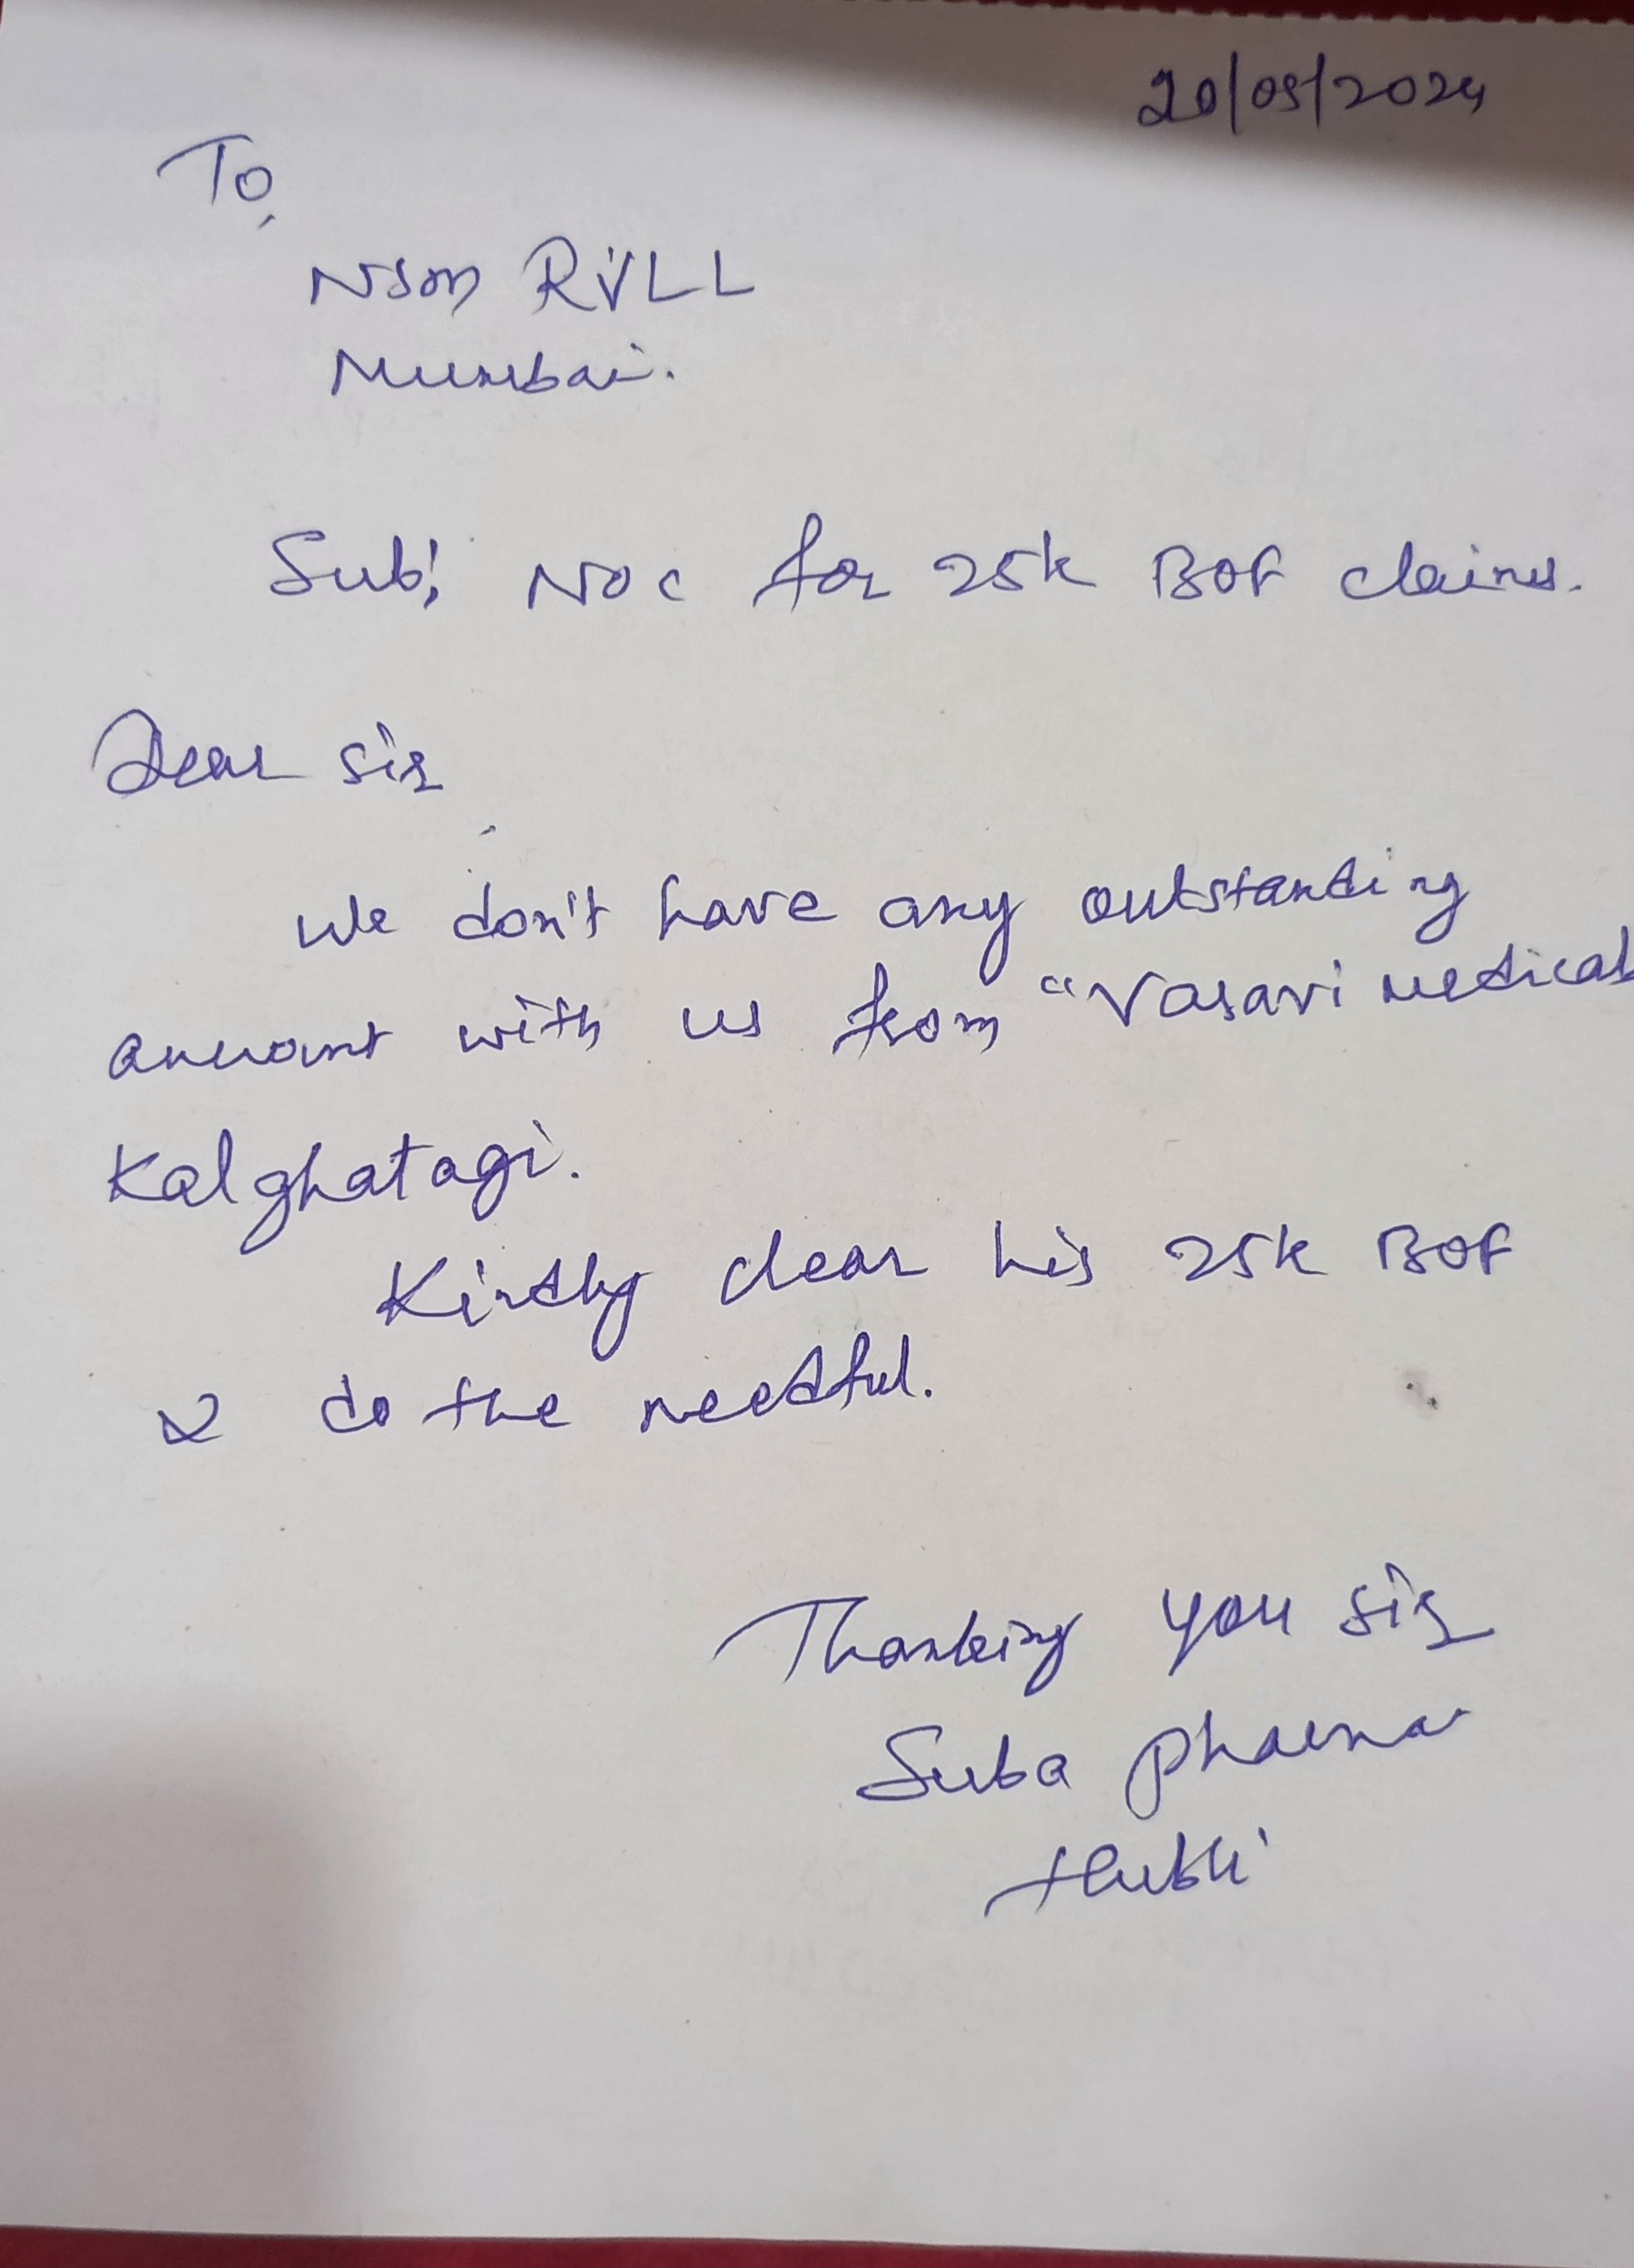 20/09/2024
To,
NSOM RVLL
Mumbai.
Sub: NOC for 25k BOF claims.
Dear Sir
We don't have any outstanding
amount with us from "Vasavi medical
Kalghatagi.
Kindly clear his 25k BOF
& do the needful.
Thanking you sir
Suba pharma
Hubli